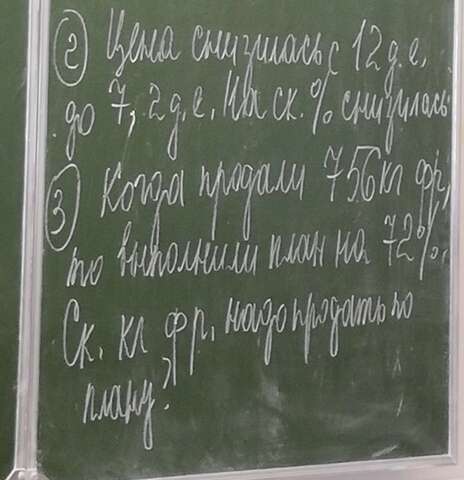 ② Цена снизилась с 12 д.е.
до 7,2 д.е. На ск.% снизилась
③ Когда продали 756 кг фр,
то выполнили план на 72%.
Ск. кг фр. надо продать по
плану?